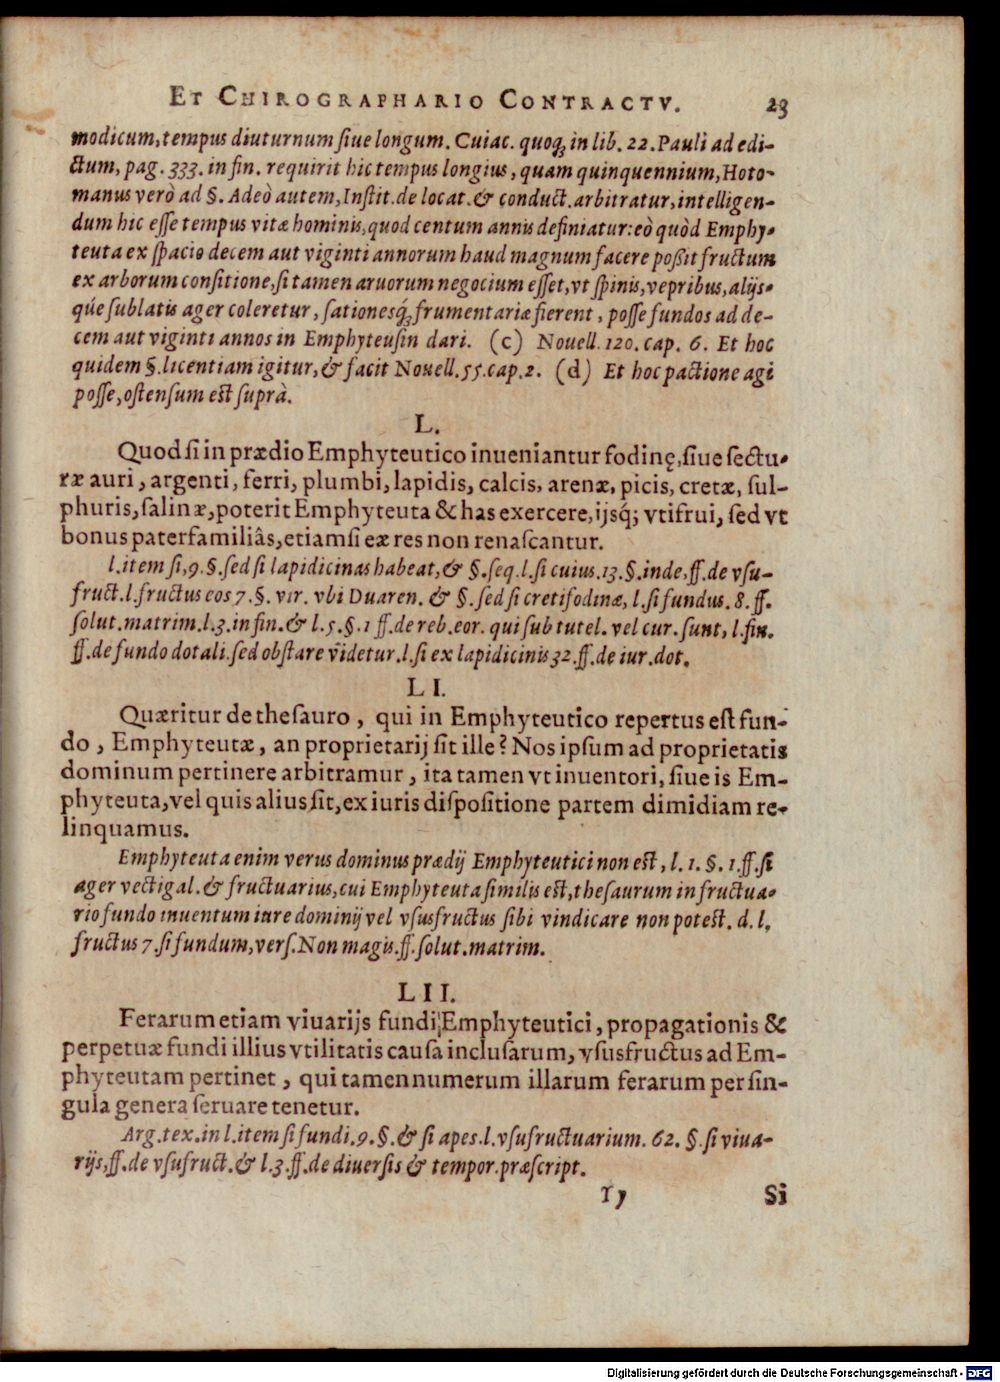 ET CHIROGRAPHARIO CONTRACTV. 23
modicum, tempus diuturnum ſiue longum. Cuiac. quoq́ʒ in lib. 22. Pauli ad edi-
ctum, pag. 333. in fin. requirit hic tempus longius, quam quinquennium, Hoto-
manus verò ad §. Adeò autem, Inſtit. de locat. & conduct. arbitratur, intelligen-
dum hic eſſe tempus vitæ hominis, quod centum annis definiatur: eò quòd Emphy-
teuta ex ſpacio decem aut viginti annorum haud magnum facere poßit fructum
ex arborum conſitione, ſi tamen aruorum negocium eſſet, vt ſpinis, vepribus, alijs-
qúe ſublatis ager coleretur, ſationesq́ʒ frumentariæ fierent, poſſe fundos ad de-
cem aut viginti annos in Emphyteuſin dari. (c) Nouell. 120. cap. 6. Et hoc
quidem §. licentiam igitur, & facit Nouell. 55. cap. 2. (d) Et hoc pactione agi
poſſe, oſtenſum eſt ſuprà.
L.
Quod ſi in prædio Emphyteutico inueniantur fodinę, ſiue ſectu-
ræ auri, argenti, ferri, plumbi, lapidis, calcis, arenæ, picis, cretæ, ſul-
phuris, ſalinæ, poterit Emphyteuta & has exercere, ijsq́; vtifrui, ſed vt
bonus paterfamiliâs, etiamſi eæ res non renaſcantur.
l. item ſi, 9. §. ſed ſi lapidicinas habeat, & §. ſeq. l. ſi cuius. 13. §. inde, ff. de vſu-
fruct. l. fructus eos 7. §. vir. vbi Duaren. & §. ſed ſi cretifodinæ, l. ſi fundus. 8. ff.
ſolut. matrim. l. 3. in fin. & l. 5. §. 1 ff. de reb. eor. qui ſub tutel. vel cur. ſunt, l. fin.
ff. de fundo dotali. ſed obſtare videtur. l. ſi ex lapidicinis 32. ff. de iur. dot.
LI.
Quæritur de theſauro, qui in Emphyteutico repertus eſt fun-
do, Emphyteutæ, an proprietarij ſit ille? Nos ipſum ad proprietatis
dominum pertinere arbitramur, ita tamen vt inuentori, ſiue is Em-
phyteuta, vel quis alius ſit, ex iuris diſpoſitione partem dimidiam re-
linquamus.
Emphyteuta enim verus dominus prædij Emphyteutici non eſt, l. 1. §. 1. ff. ſi
ager vectigal. & fructuarius, cui Emphyteuta ſimilis eſt, theſaurum in fructua-
rio fundo inuentum iure dominij vel vſusfructus ſibi vindicare non poteſt. d. l.
fructus 7. ſi fundum, verſ. Non magis. ff. ſolut. matrim.
LII.
Ferarum etiam viuarijs fundi Emphyteutici, propagationis &
perpetuæ fundi illius vtilitatis cauſa incluſarum, vſusfructus ad Em-
phyteutam pertinet, qui tamen numerum illarum ferarum per ſin-
gula genera ſeruare tenetur.
Arg. tex. in l. item ſi fundi. 9. §. & ſi apes. l. vſufructuarium. 62. §. ſi viua-
rijs, ff. de vſufruct. & l. 3. ff. de diuerſis & tempor. præſcript.
Si
Digitalisierung gefördert durch die Deutsche Forschungsgemeinschaft - DFG